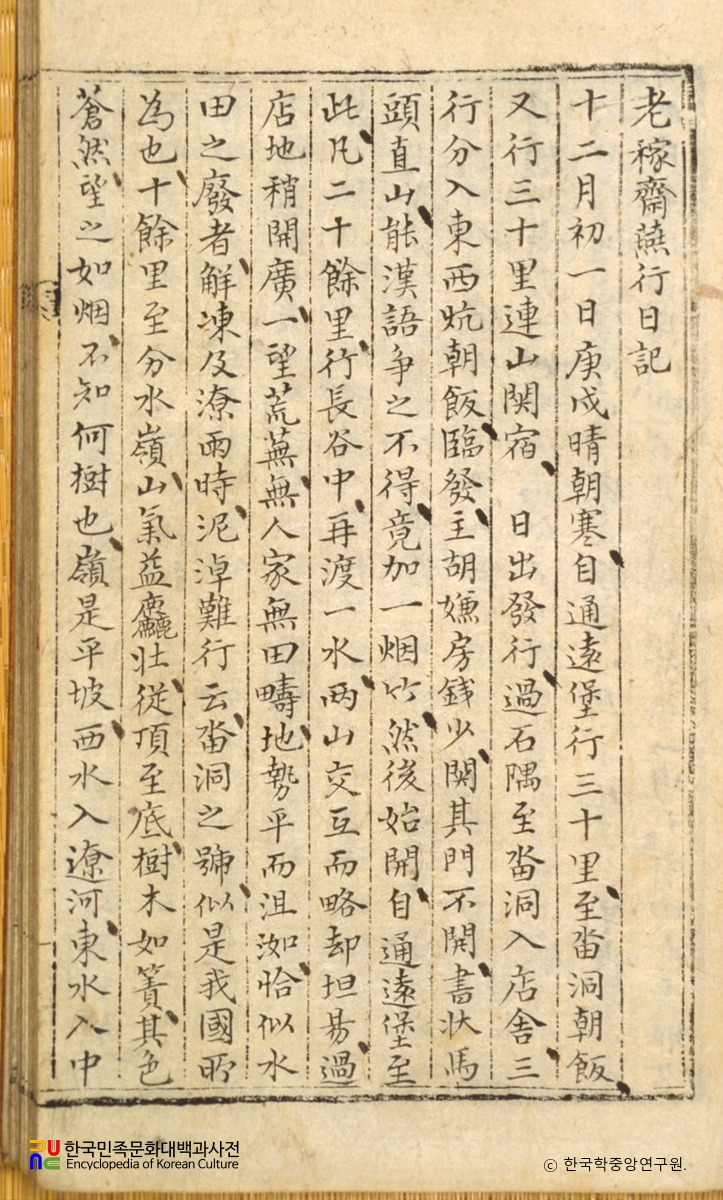 老稼齋燕行日記
十二月初一日庚戌晴朝寒自通遠堡行三十里至畓洞朝飯
又行三十里連山関宿　日出發行過石隅至畓洞入店舍三
行分入東西炕朝飯臨發主胡嫌房錢少関其門不開書状馬
頭直山能漢語爭之不得竟加一烟竹然後始開自通遠堡至
此凡二十餘里行長谷中再渡一水兩山交互而略却坦易過
店地稍開廣一望荒蕪無人家無田疇地勢平而沮洳恰似水
田之廢者觧凍及潦雨時泥淖難行云畓洞之號似是我國所
為也十餘里至分水嶺山氣益麤壯從頂至底樹木如簀其色
蒼然望之如烟不知何樹也嶺是平坡西水入遼河東水入中
한국민족문화대백과사전
Encyclopedia of Korean Culture
ⓒ 한국학중앙연구원.